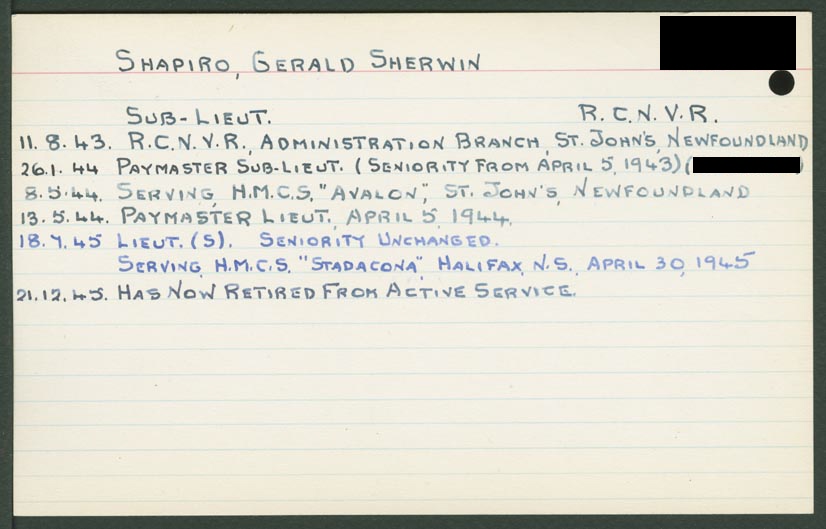 SHAPIRO, GERALD SHERWIN
SUB-LIEUT. R.C.N.V.R.
11.8.43. R.C.N.V.R., ADMINISTRATION BRANCH, ST. JOHN'S, NEWFOUNDLAND
26.1.44 PAYMASTER SUB-LIEUT. (SENIORITY FROM APRIL 5, 1943) ( )
8.5.44. SERVING, H.M.C.S. "AVALON", ST. JOHN'S, NEWFOUNDLAND
13.5.44. PAYMASTER LIEUT., APRIL 5, 1944.
18.7.45 LIEUT. (S). SENIORITY UNCHANGED.
SERVING, H.M.C.S. "STADACONA", HALIFAX, N.S., APRIL 30, 1945
21.12.45. HAS NOW RETIRED FROM ACTIVE SERVICE.